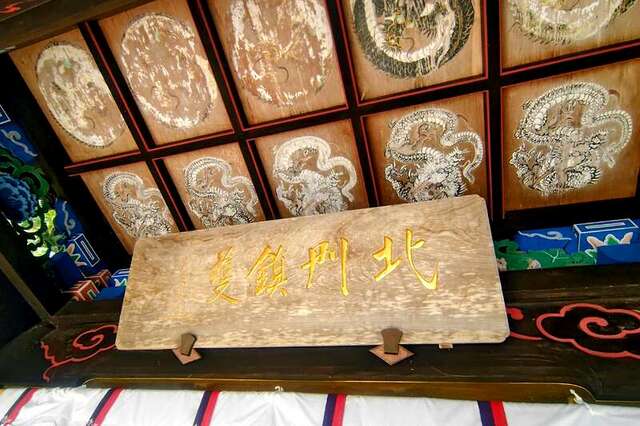 北州鎮護